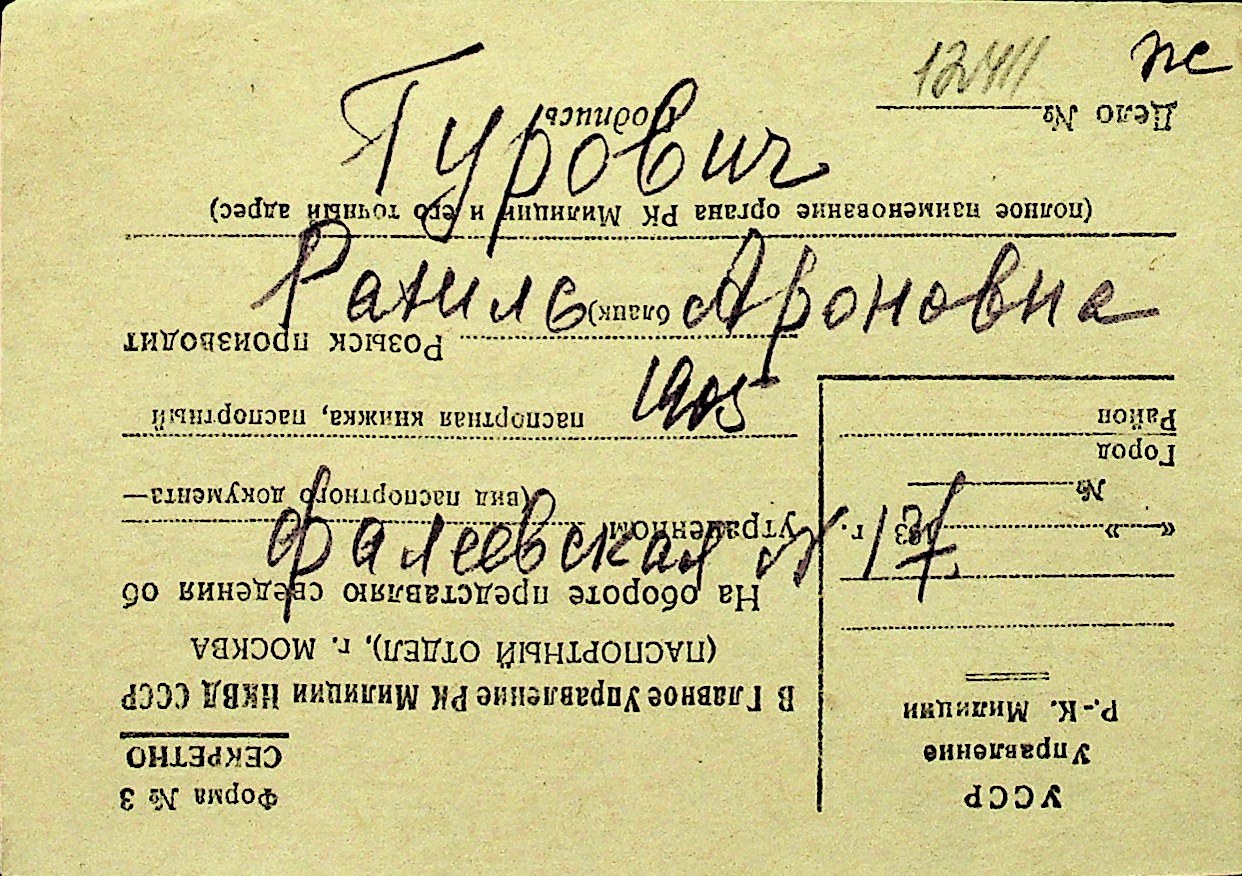 12411 же
Гурович
Рахиль Ароновна
1905
Фалеевская № 17
УССР
Управление
Р.-К. Милиции
« » 193 г.
№
Город
Район
Форма № 3
СЕКРЕТНО
В Главное Управление РК Милиции НКВД СССР
(ПАСПОРТНЫЙ ОТДЕЛ), г. МОСКВА
На обороте представляю сведения об
утраченном
(вид паспортного документа—
паспортная книжка, паспортный
Розыск производит
бланк)
(полное наименование органа РК Милиции и его точный адрес)
Дело № Подпись